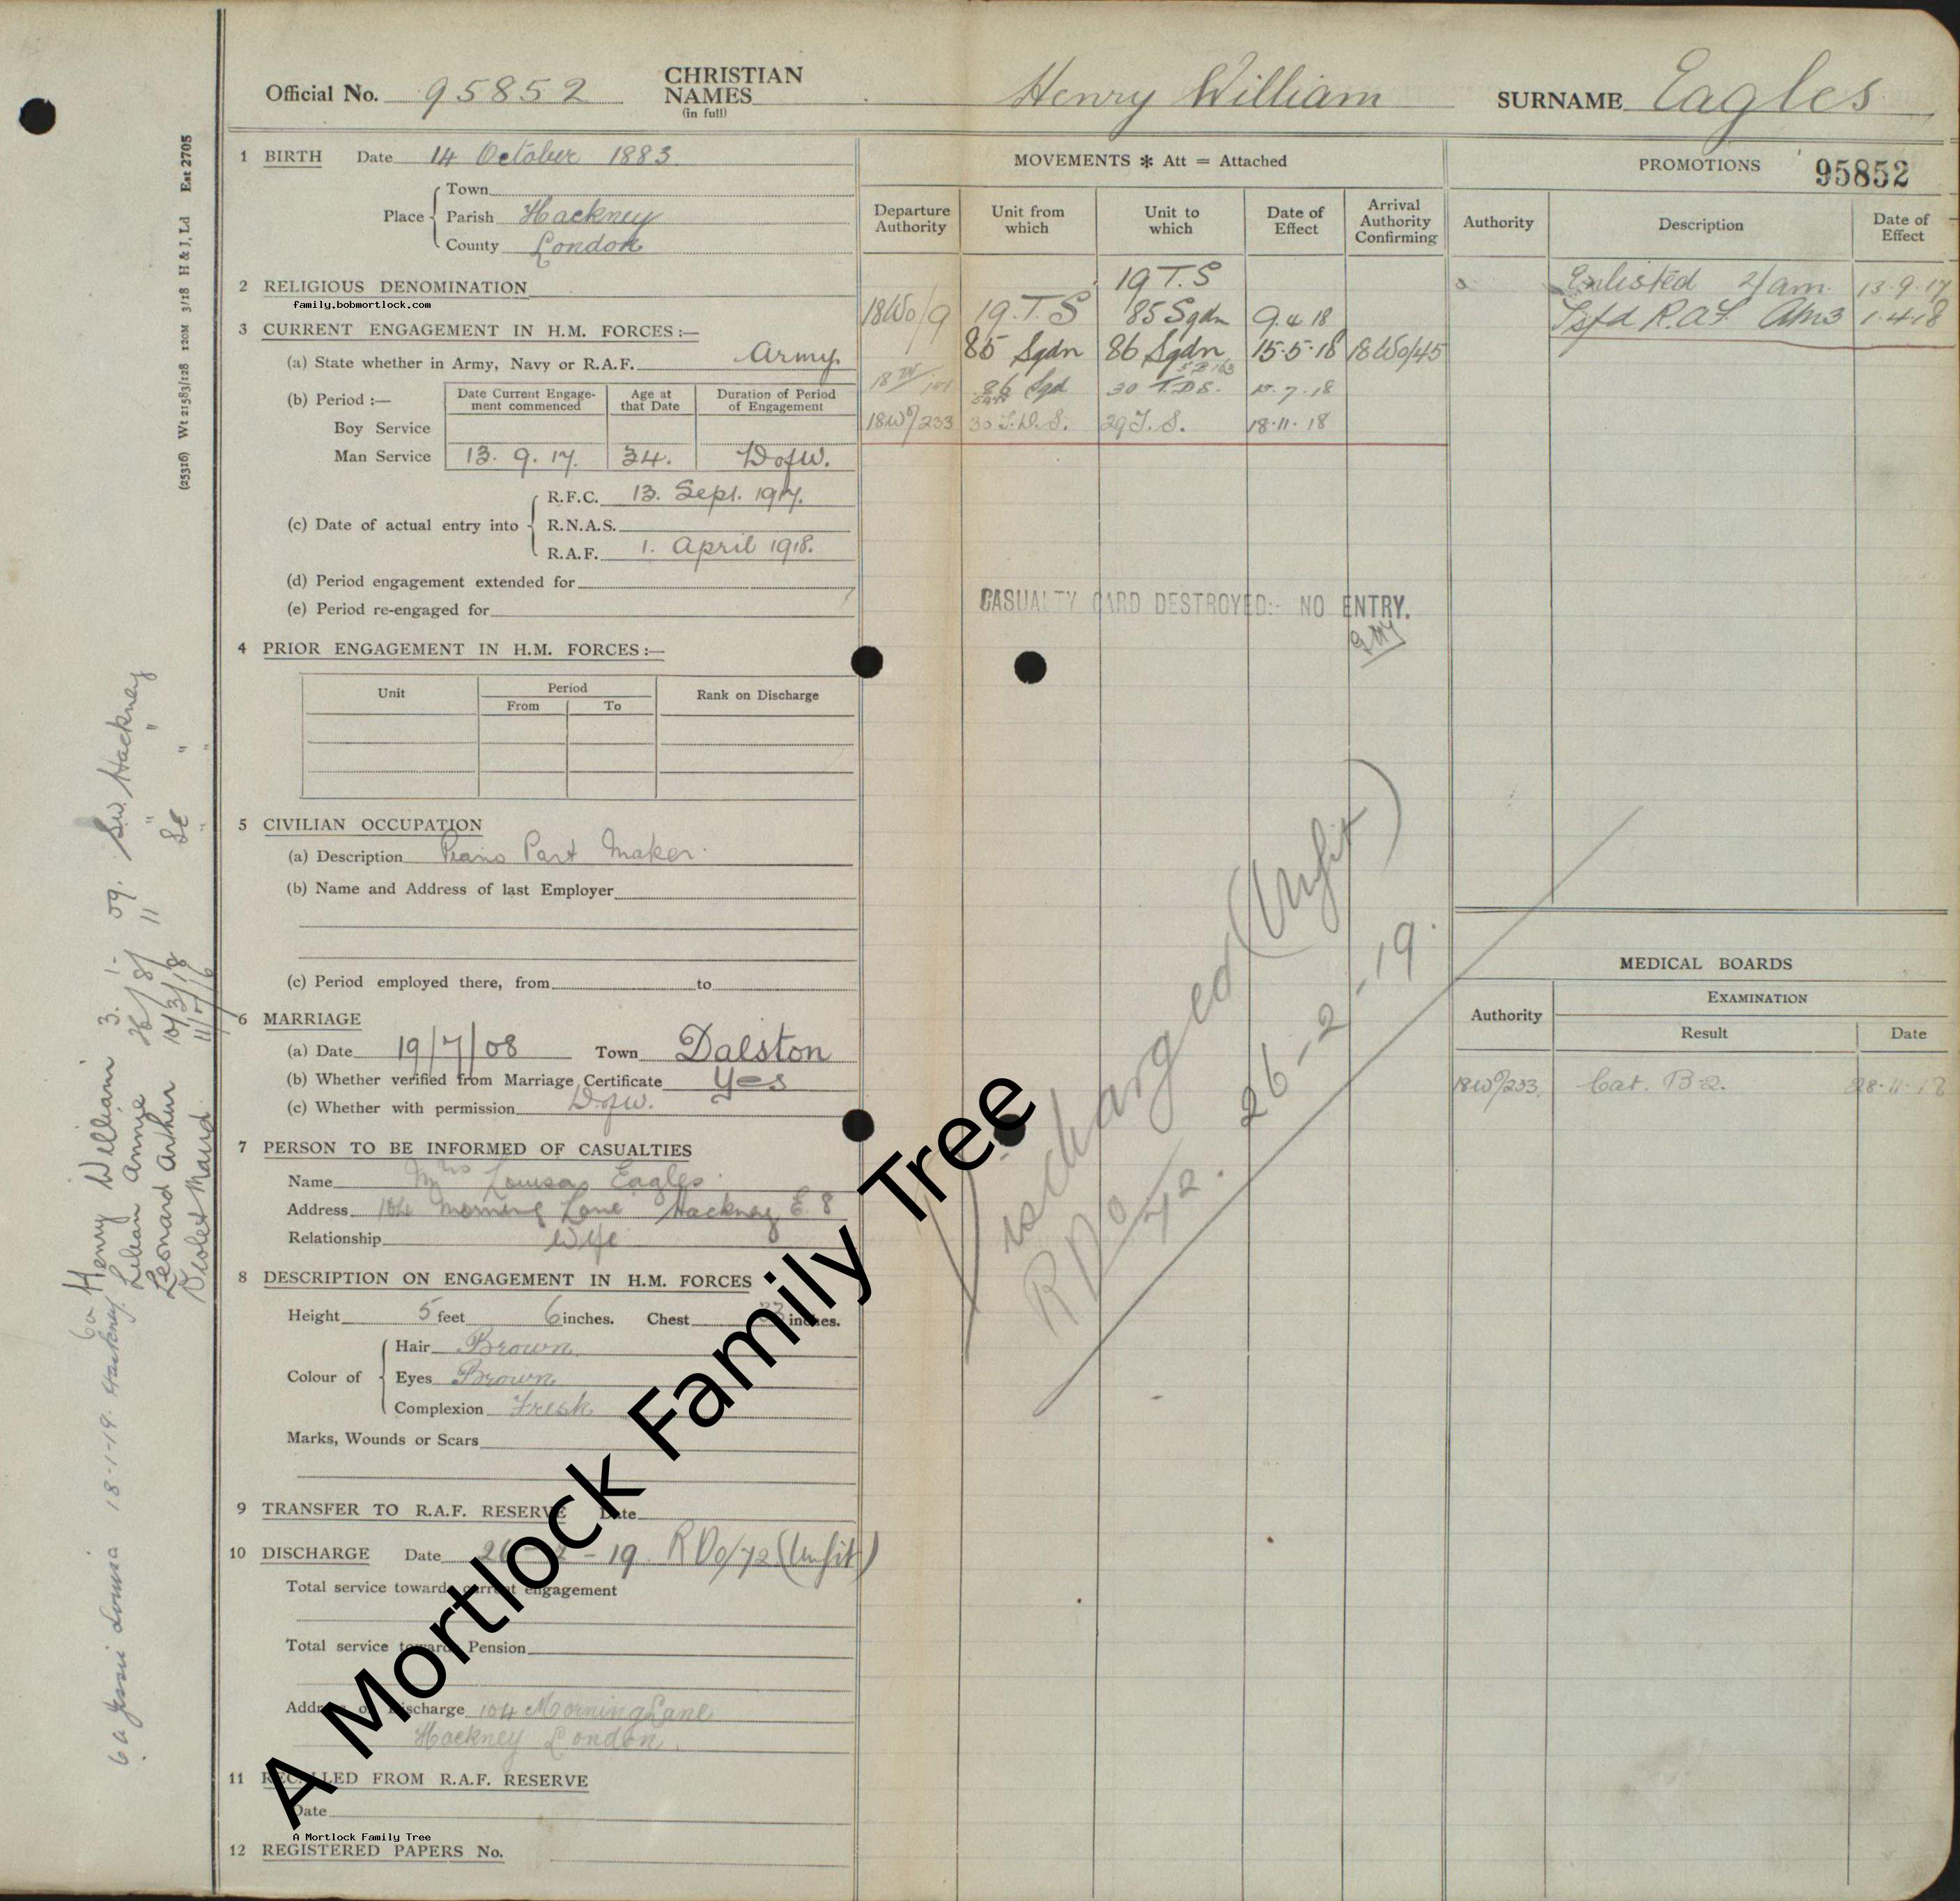 Official No. 95852 CHRISTIAN NAMES (in full) Henry William SURNAME Eagles
1 BIRTH Date 14 October 1883
Place Town
Parish Hackney
County London
2 RELIGIOUS DENOMINATION
family.bobmortlock.com
3 CURRENT ENGAGEMENT IN H.M. FORCES :—
(a) State whether in Army, Navy or R.A.F. Army
(b) Period :— Date Current Engagement commenced Age at that Date Duration of Period of Engagement
Boy Service
Man Service 13. 9. 17. 34. Dofw.
(c) Date of actual entry into R.F.C. 13. Sept. 1917.
R.N.A.S.
R.A.F. 1. April 1918.
(d) Period engagement extended for
(e) Period re-engaged for
4 PRIOR ENGAGEMENT IN H.M. FORCES :—
Unit Period Rank on Discharge
From To
5 CIVILIAN OCCUPATION
(a) Description Piano Part Maker
(b) Name and Address of last Employer
(c) Period employed there, from to
6 MARRIAGE
(a) Date 19/7/08 Town Dalston
(b) Whether verified from Marriage Certificate Yes
(c) Whether with permission Dofw.
7 PERSON TO BE INFORMED OF CASUALTIES
Name Mrs Louisa Eagles
Address 104 Morning Lane Hackney E. 8
Relationship Wife
8 DESCRIPTION ON ENGAGEMENT IN H.M. FORCES
Height 5 feet 6 inches. Chest 33 inches.
Colour of Hair Brown
Eyes Brown
Complexion Fresh
Marks, Wounds or Scars
9 TRANSFER TO R.A.F. RESERVE Date
10 DISCHARGE Date 26 - 2 - 19 RDo/72 (Unfit)
Total service towards current engagement
Total service towards Pension
Address on Discharge 104 Morning Lane
Hackney London.
11 RECALLED FROM R.A.F. RESERVE
Date
A Mortlock Family Tree
12 REGISTERED PAPERS No.
MOVEMENTS * Att = Attached
Departure Authority Unit from which Unit to which Date of Effect Arrival Authority Confirming
19 T.S
18Wo/9 19.T.S 85 Sqdn 9.4.18
85 Sqdn 86 Sqdn 15.5.18 18Wo/45
86 Sqd 30 T.D.S. 15.7.18
18Wo/233 30 T.D.S. 29 T.S. 18.11.18
CASUALTY CARD DESTROYED:- NO ENTRY.
Discharged (Unfit)
RDo/72. 26-2-19.
PROMOTIONS 95852
Authority Description Date of Effect
Enlisted 2/am. 13.9.17
Tsfd R.A.F. Am3 1.4.18
MEDICAL BOARDS
Authority EXAMINATION
Result Date
18Wo/233. Cat. B2. 28.11.18
A Mortlock Family Tree
(25316) Wt 21583/128 120M 3/18 H & J, Ld Est 2705
6a Henry William 3. 1- 09. Sw. Hackney
Lilian Annie 11 " "
Leonard Arthur 10/3/13 SE "
Violet Maud 11/7/16 " "
6a Jessie Louisa 18-1-19. Hackney